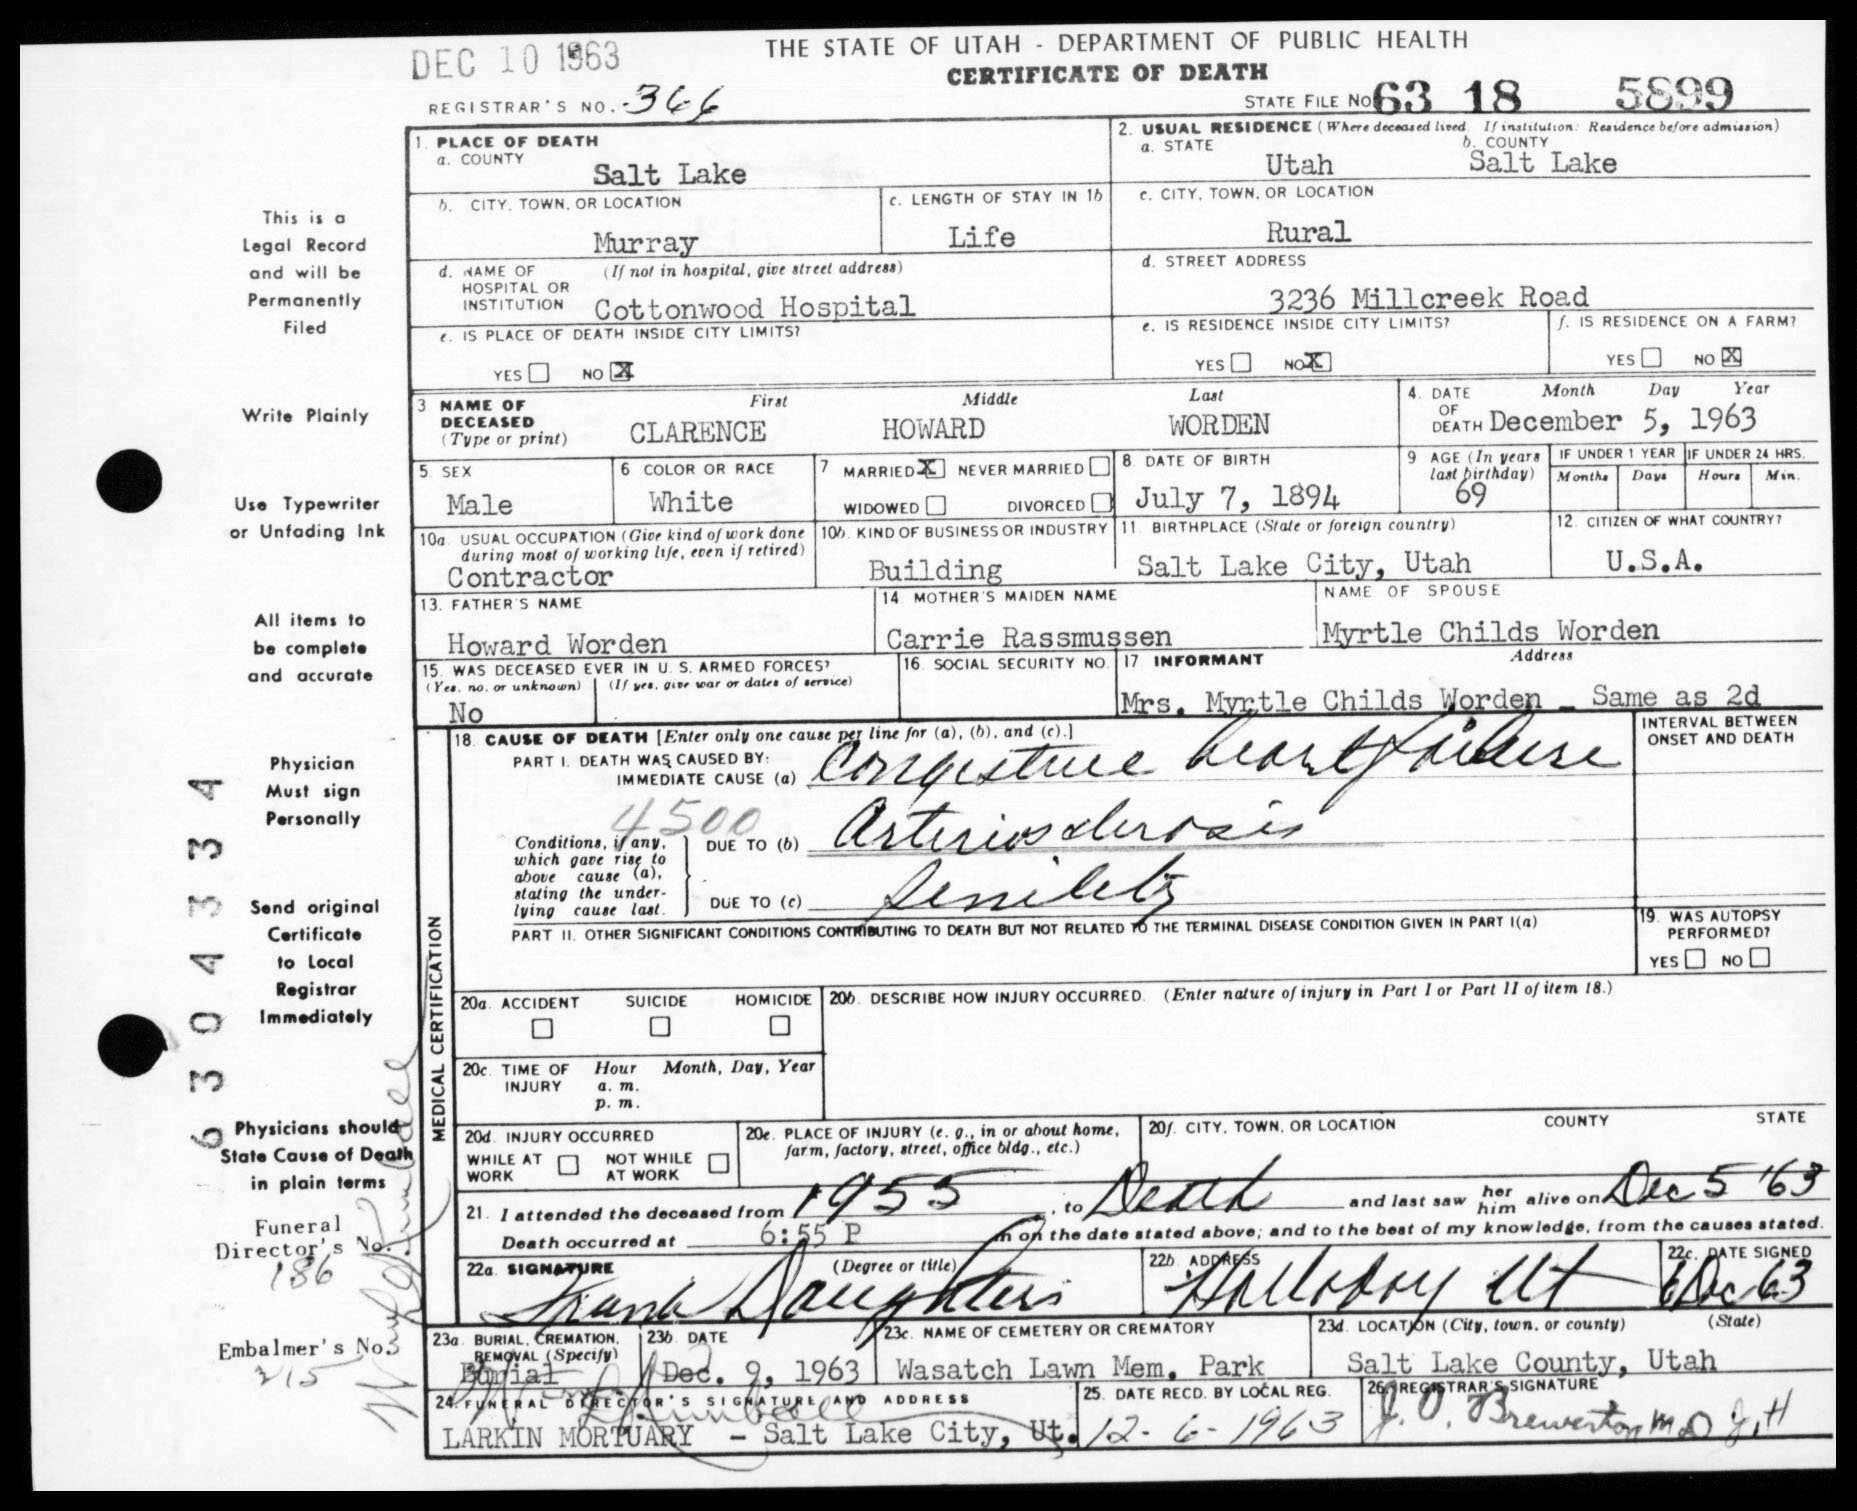 DEC 10 1963
THE STATE OF UTAH - DEPARTMENT OF PUBLIC HEALTH
CERTIFICATE OF DEATH
REGISTRAR'S NO. 366
STATE FILE NO. 63 18 5899
1. PLACE OF DEATH
a. COUNTY
Salt Lake
2. USUAL RESIDENCE (Where deceased lived. If institution: Residence before admission)
a. STATE
Utah
b. COUNTY
Salt Lake
b. CITY, TOWN, OR LOCATION
Murray
c. LENGTH OF STAY IN 1b
Life
c. CITY, TOWN, OR LOCATION
Rural
d. NAME OF HOSPITAL OR INSTITUTION
(If not in hospital, give street address)
Cottonwood Hospital
d. STREET ADDRESS
3236 Millcreek Road
e. IS PLACE OF DEATH INSIDE CITY LIMITS?
YES NO X
e. IS RESIDENCE INSIDE CITY LIMITS?
YES NO X
f. IS RESIDENCE ON A FARM?
YES NO X
3 NAME OF DECEASED
(Type or print)
First Middle Last
CLARENCE HOWARD WORDEN
4. DATE OF DEATH
Month Day Year
December 5, 1963
5 SEX
Male
6 COLOR OR RACE
White
7 MARRIED X NEVER MARRIED
WIDOWED DIVORCED
8 DATE OF BIRTH
July 7, 1894
9 AGE (In years last birthday)
69
IF UNDER 1 YEAR
Months Days
IF UNDER 24 HRS.
Hours Min.
10a. USUAL OCCUPATION (Give kind of work done during most of working life, even if retired)
Contractor
10b. KIND OF BUSINESS OR INDUSTRY
Building
11. BIRTHPLACE (State or foreign country)
Salt Lake City, Utah
12. CITIZEN OF WHAT COUNTRY?
U.S.A.
13. FATHER'S NAME
Howard Worden
14. MOTHER'S MAIDEN NAME
Carrie Rassmussen
NAME OF SPOUSE
Myrtle Childs Worden
15. WAS DECEASED EVER IN U.S. ARMED FORCES?
(Yes, no, or unknown) (If yes, give war or dates of service)
No
16. SOCIAL SECURITY NO.
17. INFORMANT Address
Mrs. Myrtle Childs Worden - Same as 2d
MEDICAL CERTIFICATION
18. CAUSE OF DEATH [Enter only one cause per line for (a), (b), and (c).]
INTERVAL BETWEEN ONSET AND DEATH
PART I. DEATH WAS CAUSED BY:
IMMEDIATE CAUSE (a) Congestive heart failure
4500
Conditions, if any, which gave rise to above cause (a), stating the underlying cause last.
DUE TO (b) Arteriosclerosis
DUE TO (c) Senility
PART II. OTHER SIGNIFICANT CONDITIONS CONTRIBUTING TO DEATH BUT NOT RELATED TO THE TERMINAL DISEASE CONDITION GIVEN IN PART I(a)
19. WAS AUTOPSY PERFORMED?
YES NO
20a. ACCIDENT SUICIDE HOMICIDE
20b. DESCRIBE HOW INJURY OCCURRED. (Enter nature of injury in Part I or Part II of item 18.)
20c. TIME OF INJURY
Hour Month, Day, Year
a. m.
p. m.
20d. INJURY OCCURRED
WHILE AT WORK NOT WHILE AT WORK
20e. PLACE OF INJURY (e. g., in or about home, farm, factory, street, office bldg., etc.)
20f. CITY, TOWN, OR LOCATION COUNTY STATE
21. I attended the deceased from 1955, to Death and last saw her him alive on Dec 5 '63
Death occurred at 6:55 P m on the date stated above; and to the best of my knowledge, from the causes stated.
22a. SIGNATURE (Degree or title)
Frank Daughters
22b. ADDRESS
Holladay Ut
22c. DATE SIGNED
6 Dec 63
23a. BURIAL, CREMATION, REMOVAL (Specify)
Burial
23b. DATE
Dec. 9, 1963
23c. NAME OF CEMETERY OR CREMATORY
Wasatch Lawn Mem. Park
23d. LOCATION (City, town, or county) (State)
Salt Lake County, Utah
24. FUNERAL DIRECTOR'S SIGNATURE AND ADDRESS
LARKIN MORTUARY - Salt Lake City, Ut.
25. DATE RECD. BY LOCAL REG.
12-6-1963
26. REGISTRAR'S SIGNATURE
J. O. Brewerton M D J. H
This is a
Legal Record
and will be
Permanently
Filed
Write Plainly
Use Typewriter
or Unfading Ink
All items to
be complete
and accurate
Physician
Must sign
Personally
Send original
Certificate
to Local
Registrar
Immediately
Physicians should
State Cause of Death
in plain terms
Funeral
Director's No.
186
Embalmer's No.
315
63043334